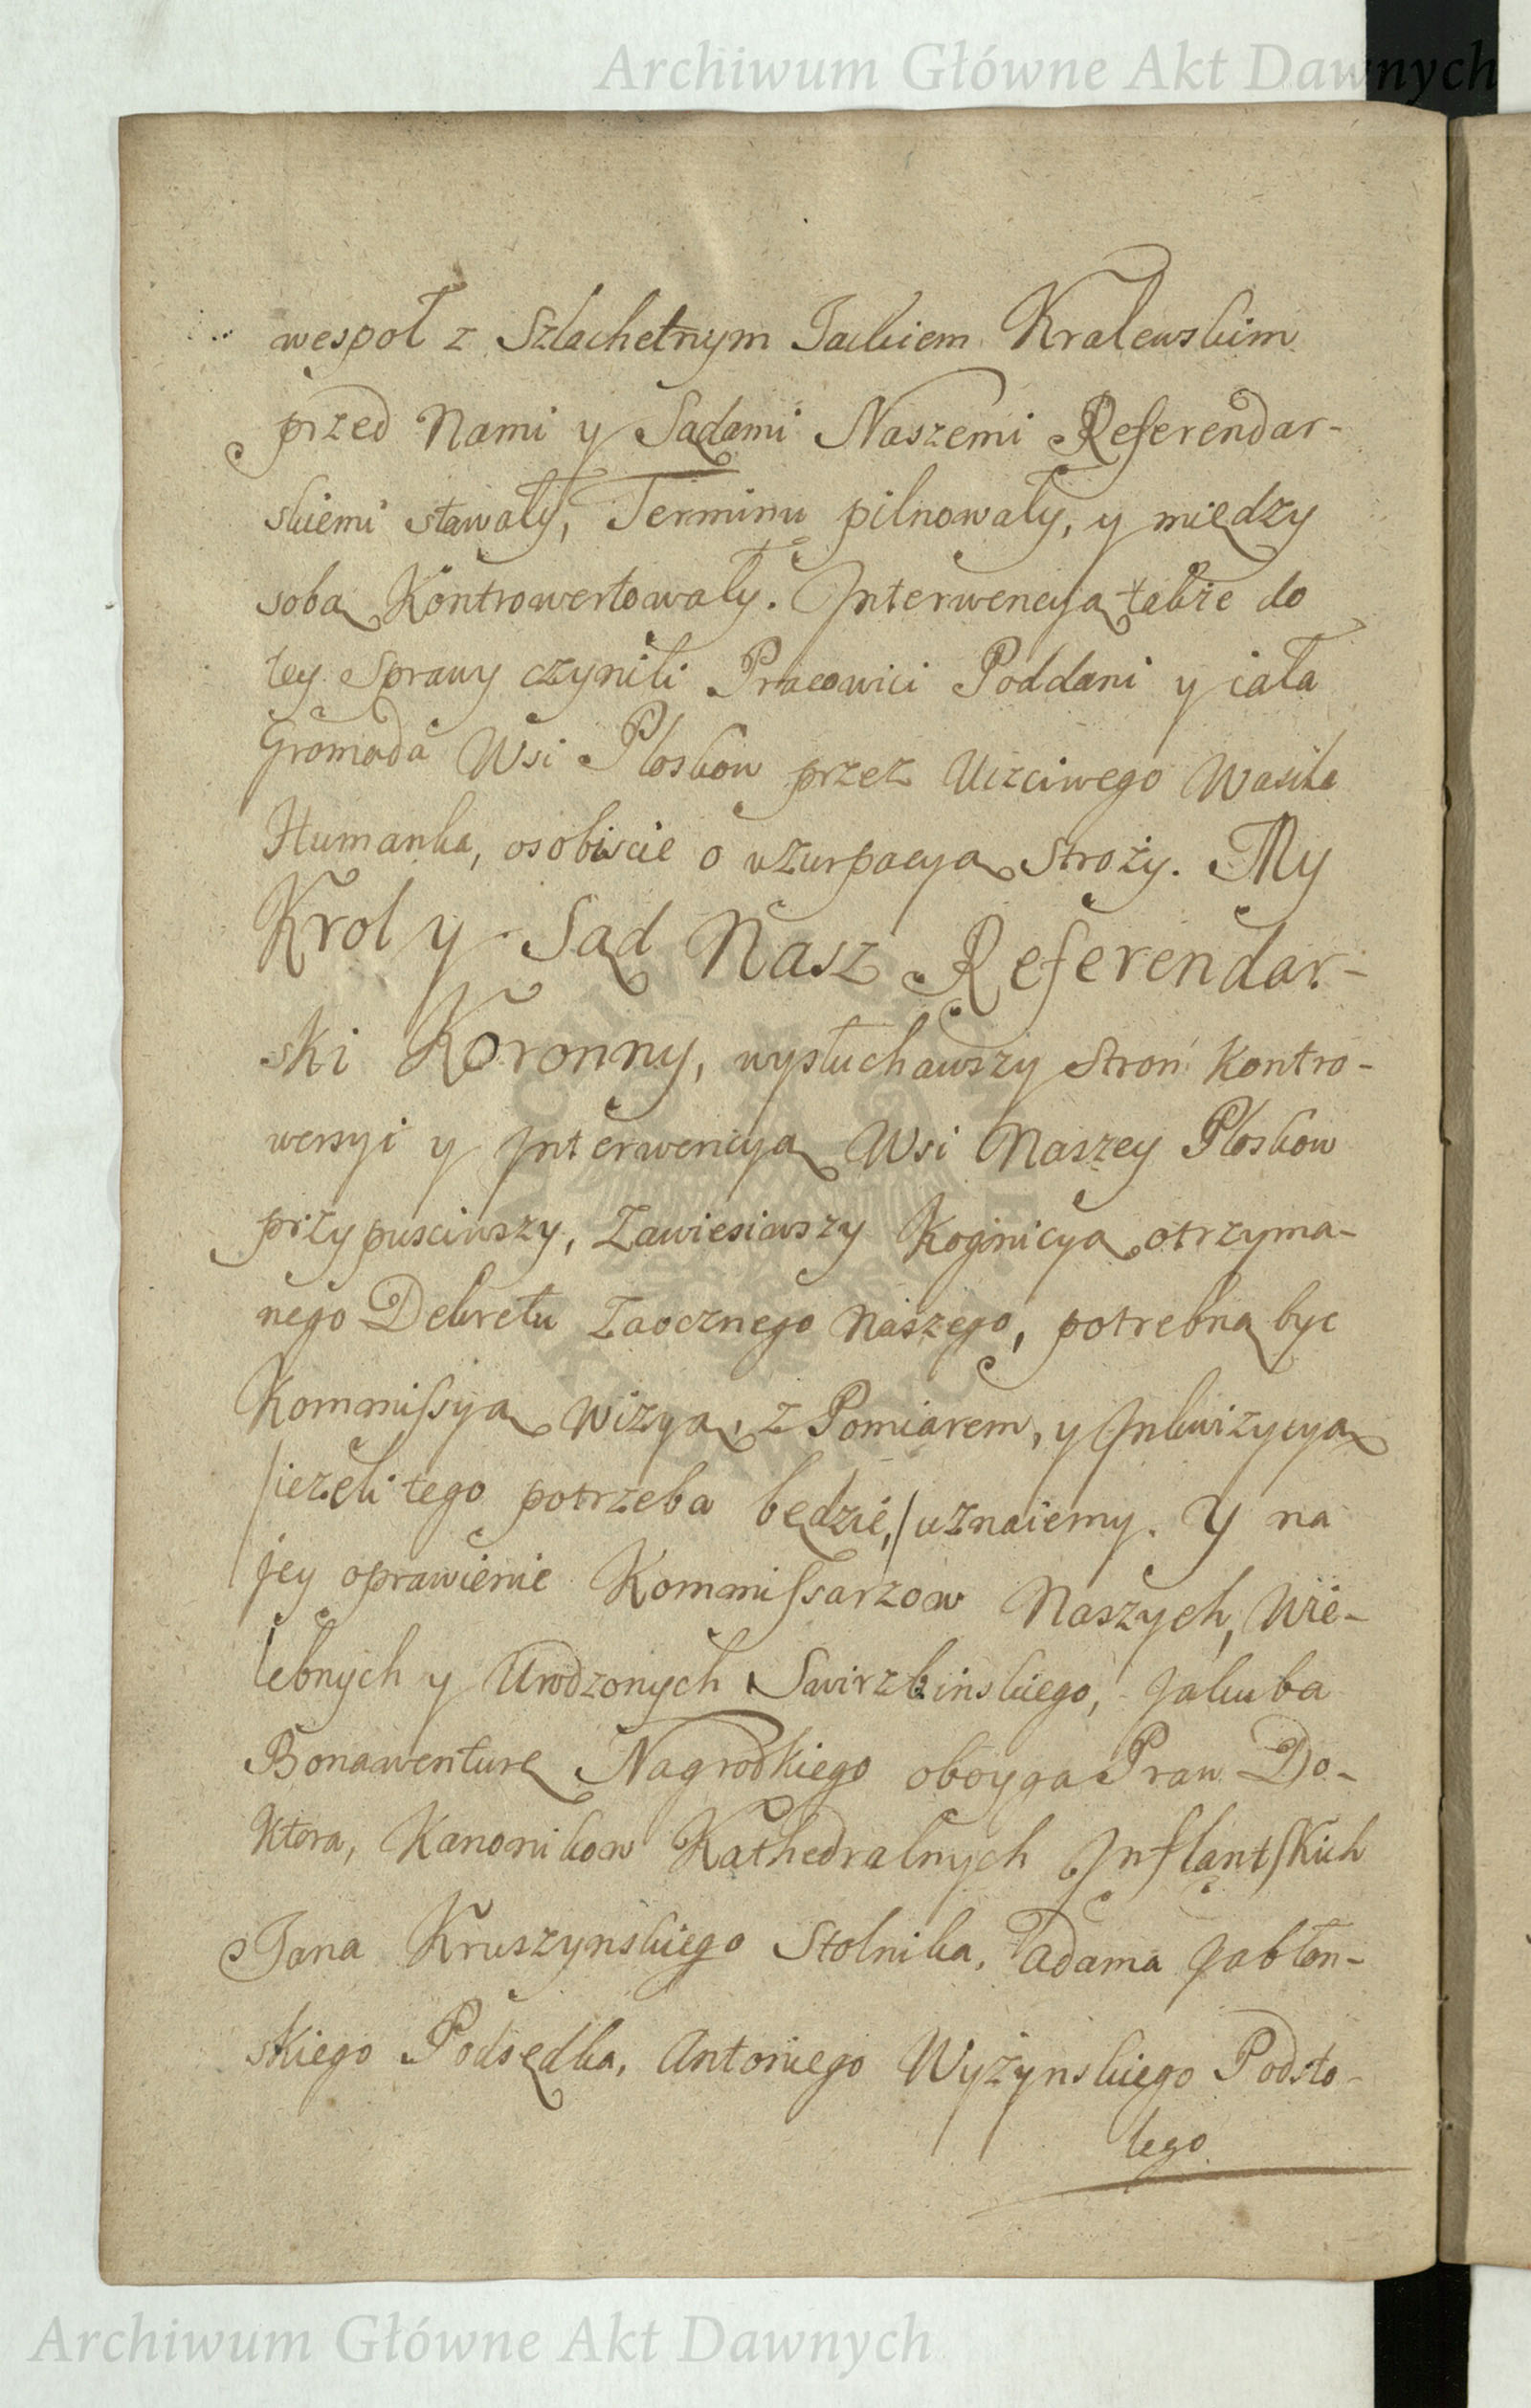 Archiwum Główne Akt Dawnych
wespoł z Szlachetnym Jackiem Kralewskim
przed Nami y Sądami Naszemi Referendar-
skiemi stawały, Terminu pilnowały, y między
sobą Kontrowertowały. Interwencyą także do
tey Sprawy czynili Pracowici Poddani y cała
Gromada Wsi Ploskow przez Uczciwego Wasila
Humanka, osobiscie o uzurpacyą Stroży. My
Krol y Sąd Nasz Referendar-
ski Koronny, wysłuchawszy Stron Kontro-
wersyi y Interwencyą Wsi Naszey Ploskow
przypusciwszy, Zawiesiwszy Kognicyą otrzyma-
nego Dekretu Zaocznego Naszego, potrebną byc
Kommissyą Wizyą, z Pomiarem, y Inkwizycyą
/ieżeli tego potrzeba będzie,/ uznaiemy. Y na
jey oprawienie Kommissarzow Naszych, Wie-
lebnych y Urodzonych Swirzbinskiego, Jakuba
Bonawenturę Nagrodkiego oboyga Praw Do-
ktora, Kanonikow Kathedralnych Inflantskich
Jana Kruszynskiego Stolnika, Adama Jabłon-
skiego Podsędka, Antoniego Wyżynskiego Podsto-
lego
Archiwum Główne Akt Dawnych